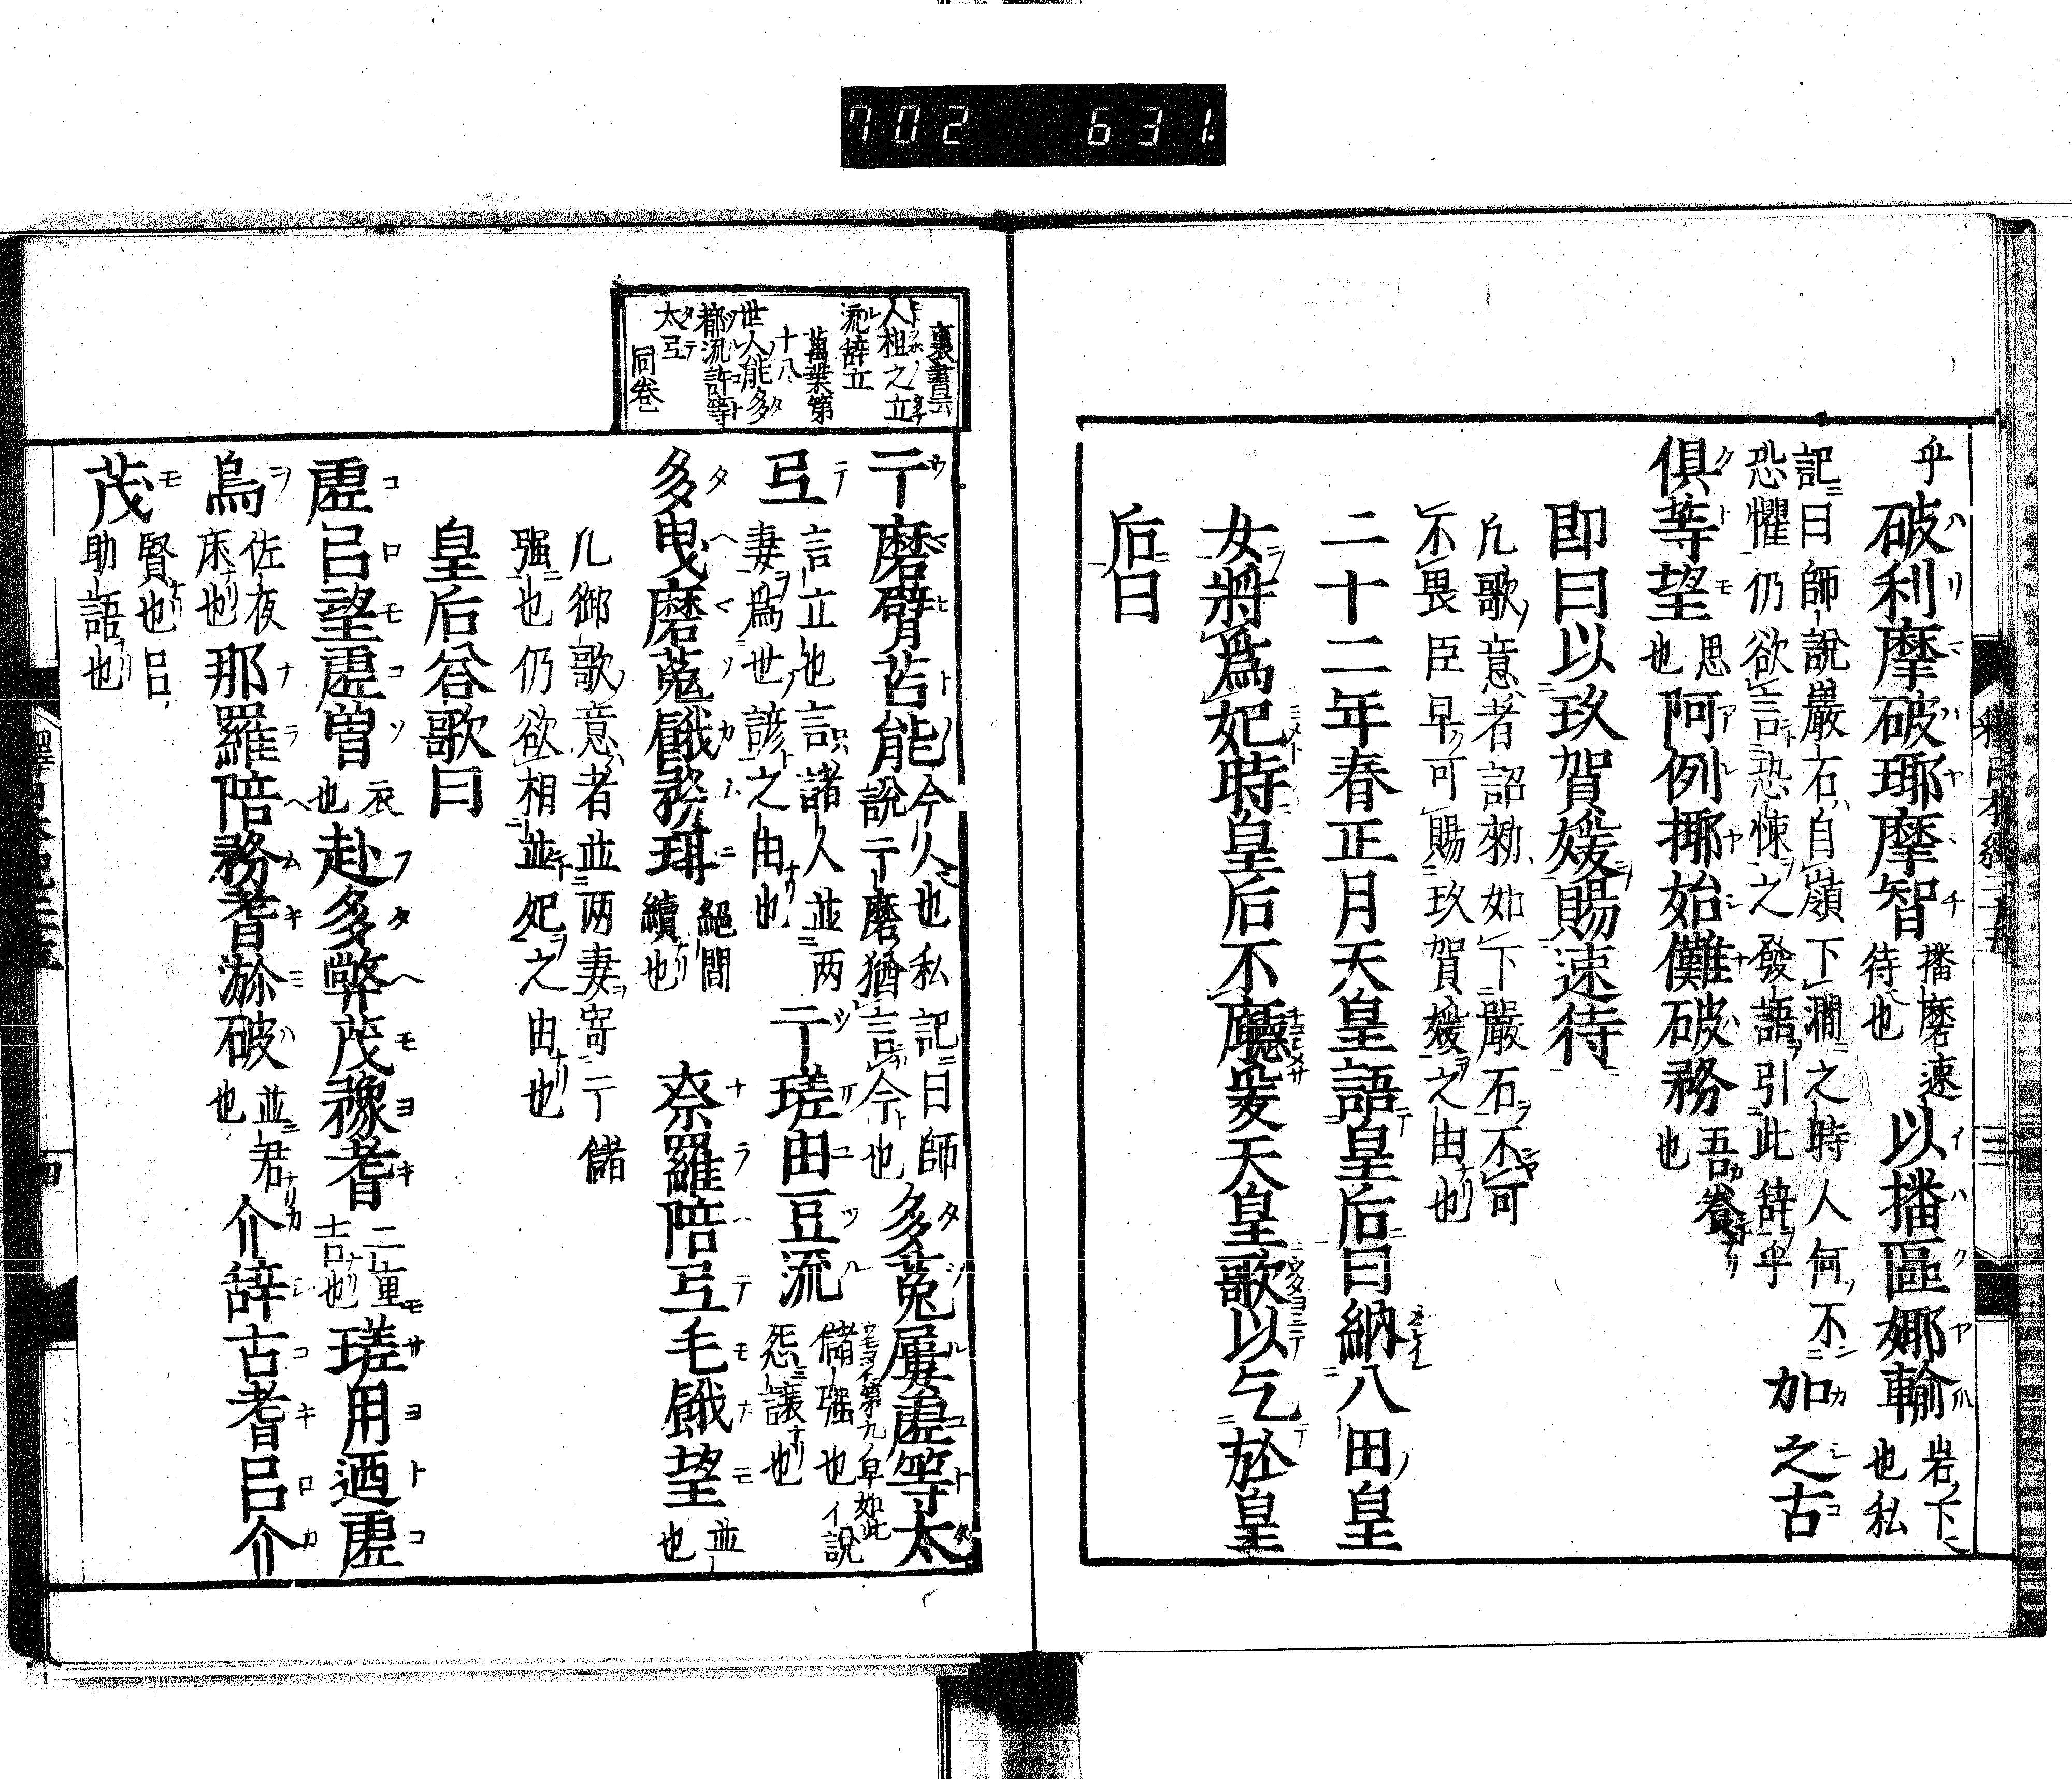 702 631.
乎破利摩破揶摩智播磨速待也以播區娜輸岩下也私
記曰師說嚴石自嶺下澗之時人何不
恐懼仍欲言恐悚之發語引此辞乎加之古
俱等望思也阿例揶始儺破務吾養也
即曰以玖賀媛賜速待
凢歌意者詔勑如下嚴石不可
不畏臣早可賜玖賀媛之由也
二十二年春正月天皇語皇后曰納八田皇
女將爲妃時皇后不聽爰天皇歌以乞於皇
后曰
裏書云
人祖之立
流辞立
萬葉第
十八
世人能多
都流許等
太弖
同巻
于磨臂苔能今人也私記曰師說于磨猶言今也多菟屢虛等太
弖言立也言諸人並两妻爲世諺之由也于瑳由豆流儲强也イ說怨讓也
多曳磨菟餓務珥絕間續也奈羅陪弖毛餓望並也
凢御歌意者並两妻寄于儲
强也仍欲相並妃之由也
皇后答歌曰
虛呂望虛曽衣也赴多弊茂豫耆二重吉也瑳用迺虛
烏佐夜床也那羅陪務耆瀰破並君也介辞古耆呂介
茂賢也呂助語也
三
四